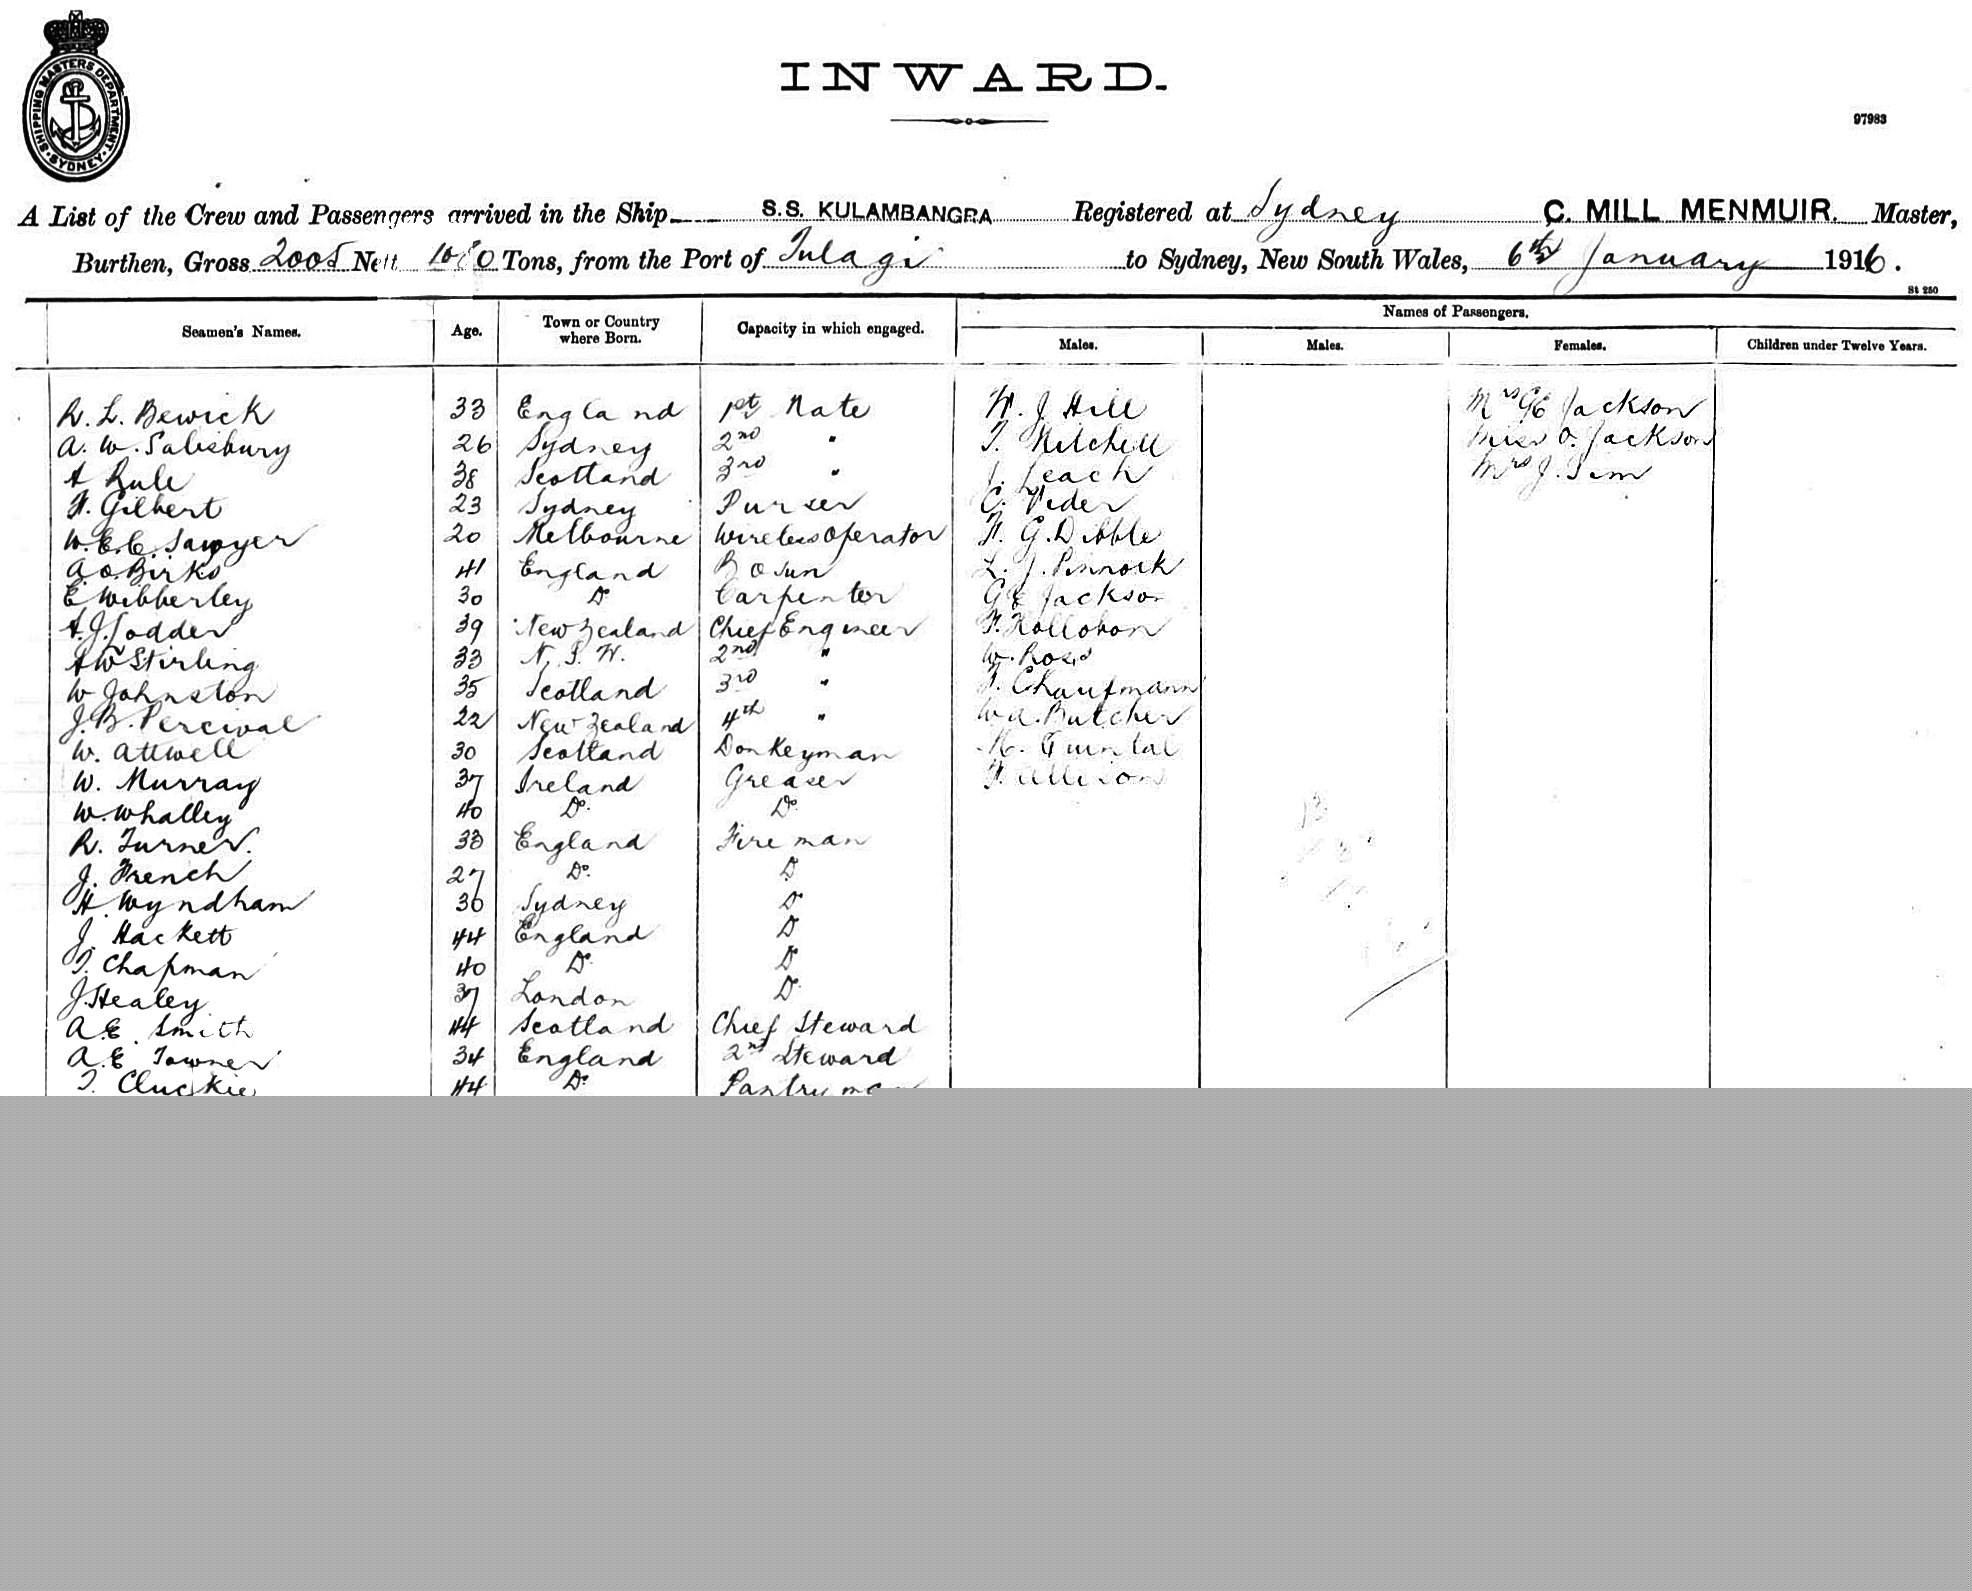 SHIPPING MASTERS DEPARTMENT
SYDNEY
INWARD.
97983
A List of the Crew and Passengers arrived in the Ship S.S. KULAMBANGRA Registered at Sydney C. MILL MENMUIR. Master,
Burthen, Gross 2005 Nett Tons, from the Port of Tulagi to Sydney, New South Wales, 6th January 1916.
St 250
Seamen's Names. Age. Town or Country where Born. Capacity in which engaged. Names of Passengers.
Males. Males. Females. Children under Twelve Years.
R. L. Bewick 33 England 1st Mate W. J. Hill Mrs GE Jackson
A. W. Salisbury 26 Sydney 2nd " T. Mitchell Miss O. Jackson
A Rule 38 Scotland 3rd " J. Leach Mrs J. Sim
F. Gilbert 23 Sydney Purser C. Vider
W. E. C. Sawyer 20 Melbourne Wireless Operator F. G. Dibble
A. O. Birks 41 England Bosun L. J. Pinnock
E Wibberley 30 Do Carpenter GE Jackson
A. J. Todder 39 New Zealand Chief Engineer F. Hollobon
AW Stirling 33 N. S. W. 2nd " W. Ross
W Johnston 35 Scotland 3rd " F. Chaufmann
J. B. Percival 22 New Zealand 4th " W A. Butcher
W. Attwell 30 Scotland Donkeyman Quintal
W. Murray 37 Ireland Greaser F. Allison
W. Whalley 40 Do. Do.
R. Turner. 33 England Fireman
J. French 27 Do. Do
H. Wyndham 30 Sydney Do
J. Hackett 44 England Do
T. Chapman 40 Do. Do
J. Healey 37 London Do
A. E. Smith 44 Scotland Chief Steward
A. E Towner 34 England 2nd Steward
T. Cluckie 44 Do. Pantryman
13